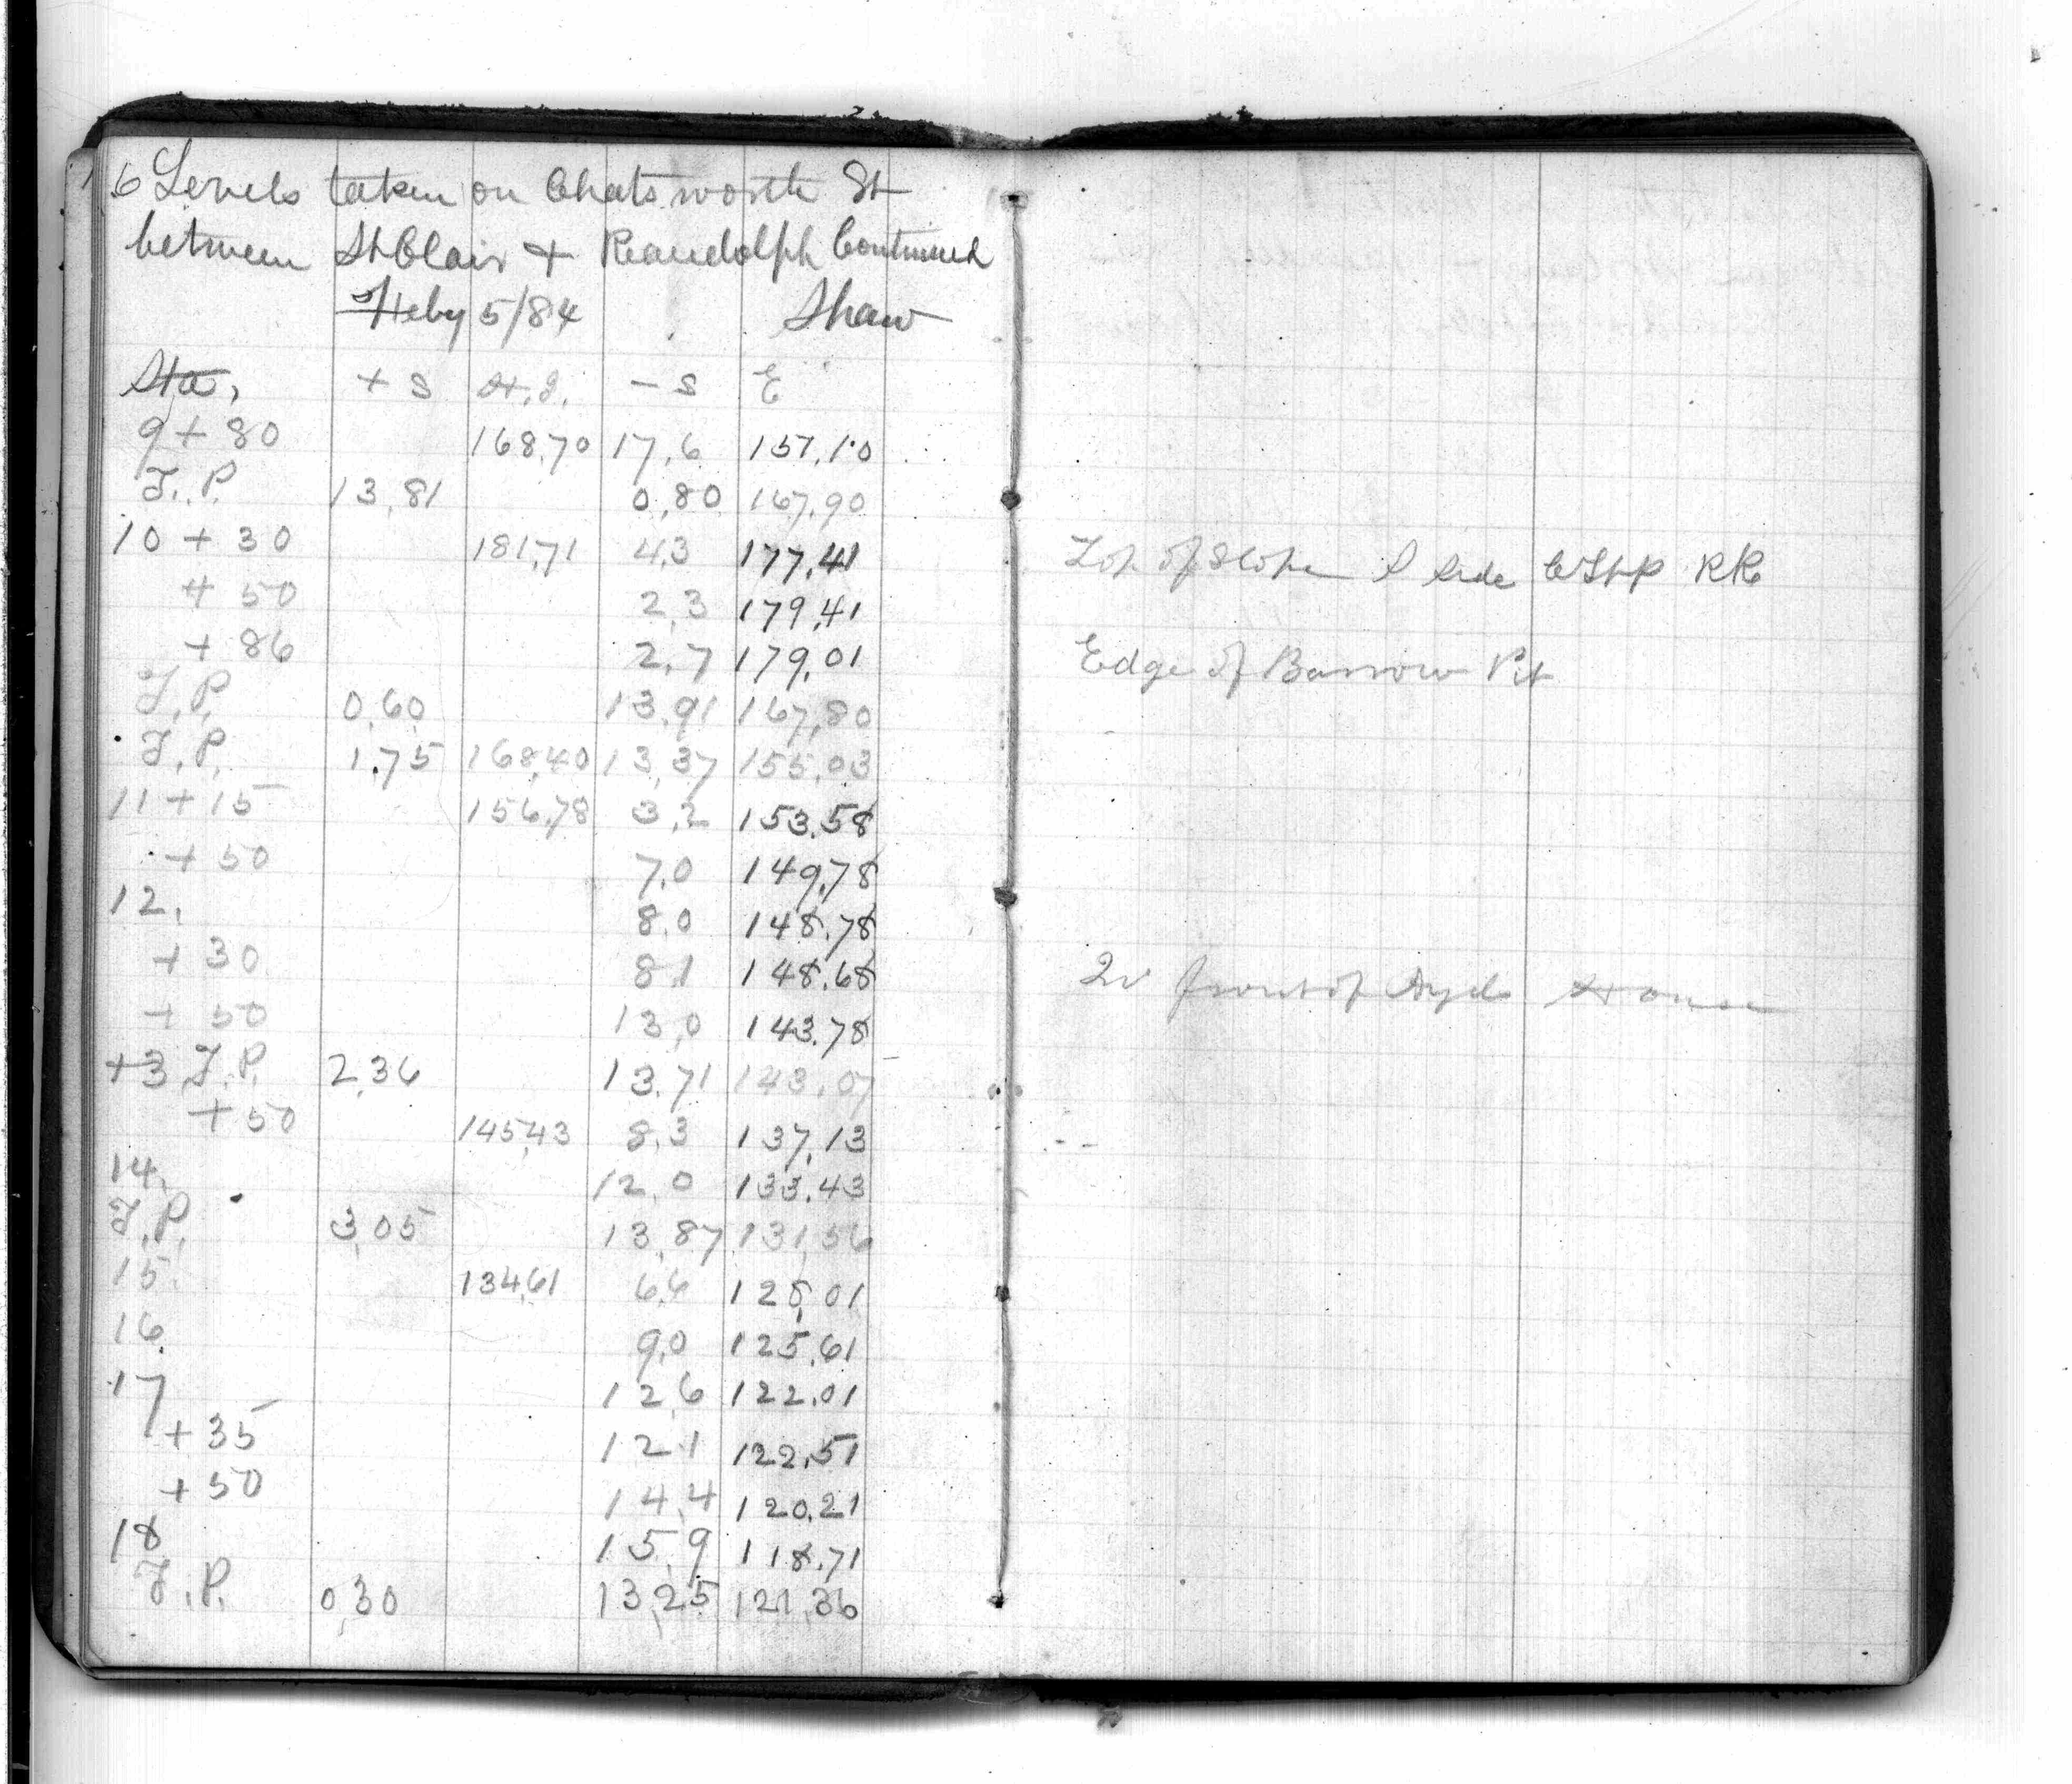 16 Levels taken on Chatsworth St
between St Clair + Randolph Continued
Feby 5/84 Shaw
Sta. + S H.I. - S E
9 + 80 168.70 17.6 151.10
T.P. 13.81 0.80 167.90
10 + 30 181.71 4.3 177.41 Top of Slope S Side CStP RR
+ 50 2.3 179.41
+ 86 2.7 179.01 Edge of Barrow Pit
T.P. 0.60 13.91 167.80
T.P. 1.75 168.40 13.37 155.03
11 + 15 156.78 3.2 153.58
+ 50 7.0 149.78
12. 8.0 148.78
+ 30 8.1 148.68 In front of House
+ 50 13.0 143.78
+3 T.P. 2.36 13.71 143.07
+ 50 145.43 8.3 137.13
14. 12.0 133.43
T.P. 3.05 13.87 131.56
15. 134.61 6.6 128.01
16. 9.0 125.61
17 12.6 122.01
+ 35 12.1 122.51
+ 50 14.4 120.21
18 15.9 118.71
T.P. 0.30 13.25 121.36